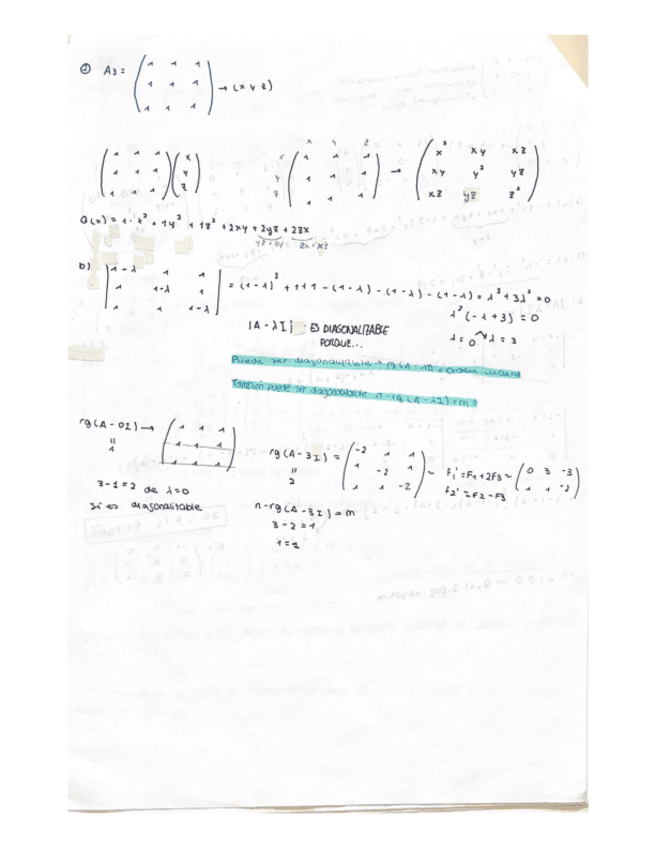 ② A3 = ( 1 1 1 / 1 1 1 / 1 1 1 ) → (x y z)
( 1 1 1 / 1 1 1 / 1 1 1 ) ( x / y / z )
x y z
x y z ( 1 1 1 / 1 1 1 / 1 1 1 ) → ( x² xy xz / xy y² yz / xz yz z² )
+ 1y² + 1z² + 2xy + 2yz + 2zx
yz+zy zx+xz
b) | 1-λ 1 1 / 1 1-λ 1 / 1 1 1-λ | = (1-λ)³ + 1+1 - (1-λ) - (1-λ) - (1-λ) = λ³ + 3λ² = 0
λ² (-λ+3) = 0
λ = 0 λ = 3
|A - λI| ES DIAGONALIZABLE
PORQUE...
Puede ser diagonalizable →
También puede ser diagonalizable n - rg (A - λI) = m
rg (A - 0I) → ( 1 1 1 / 1 1 1 / 1 1 1 )
=
1
3-1=2 de λ=0
Sí es diagonalizable
rg (A - 3I) = ( -2 1 1 / 1 -2 1 / 1 1 -2 ) ~ F1' = F1 + 2F3 ~ ( 0 3 -3 / 1 1 -2 )
F2' = F2 - F3
=
2
n - rg (A - 3I) = m
3-2=1